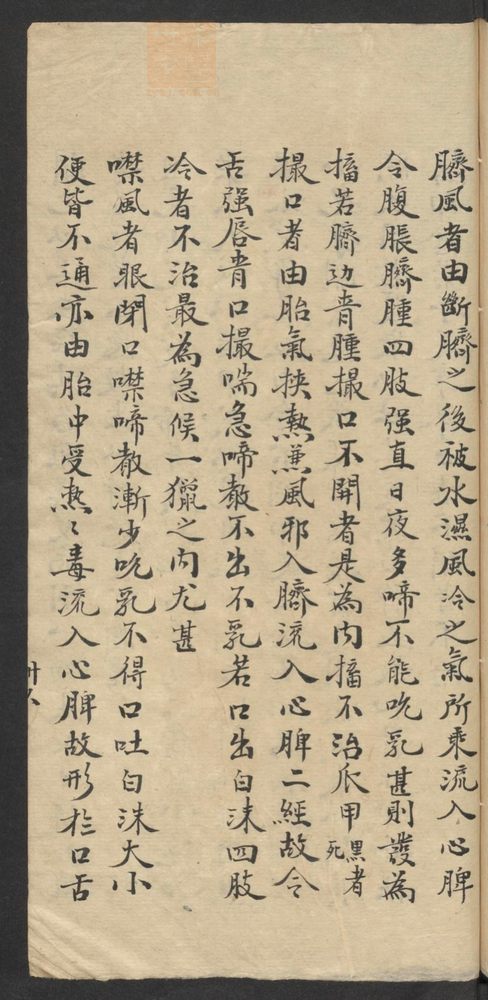 臍風者由斷臍之後被水濕風冷之氣所乘流入心脾
令腹脹臍腫四肢强直日夜多啼不能吮乳甚則發為
搐若臍边青腫撮口不開者是為内搐不治爪甲黑者死
撮口者由胎氣挾熱兼風邪入臍流入心脾二經故令
舌强唇青口撮喘急啼聲不出不乳若口出白沫四肢
冷者不治最為急候一獵之内尤甚
噤風者眼閉口噤啼聲漸少吮乳不得口吐白沫大小
便皆不通亦由胎中受熱〻毒流入心脾故形扵口舌
廿八